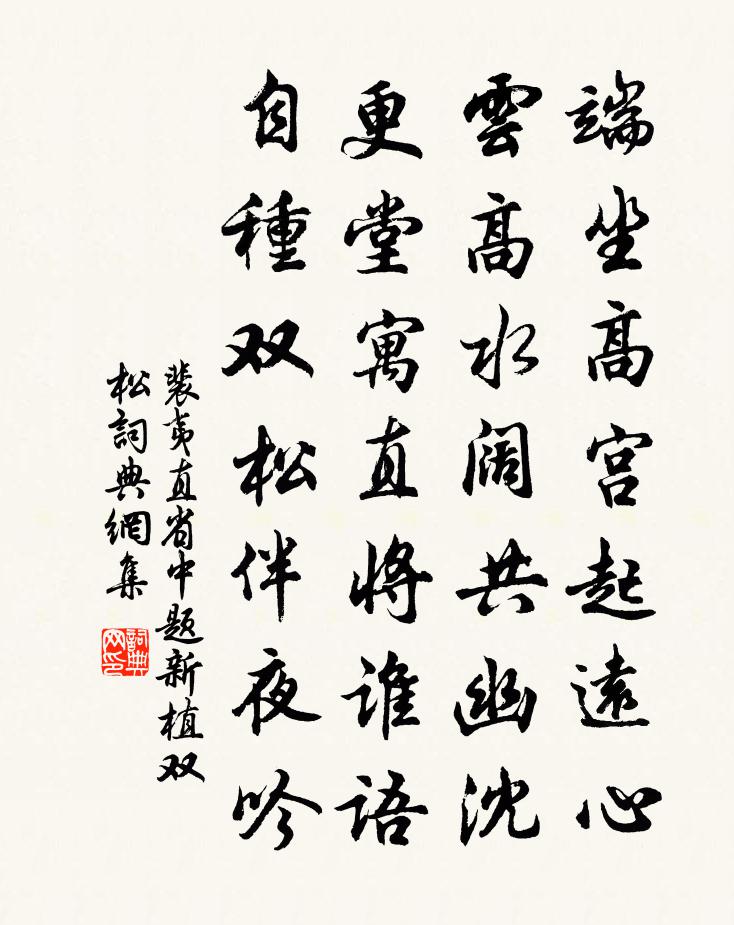 端坐高宫起遠心
雲高水阔共幽沈
更堂寓直將誰語
自種双松伴夜吟
裴夷直省中題新植双
松詞典網集
詞典网印